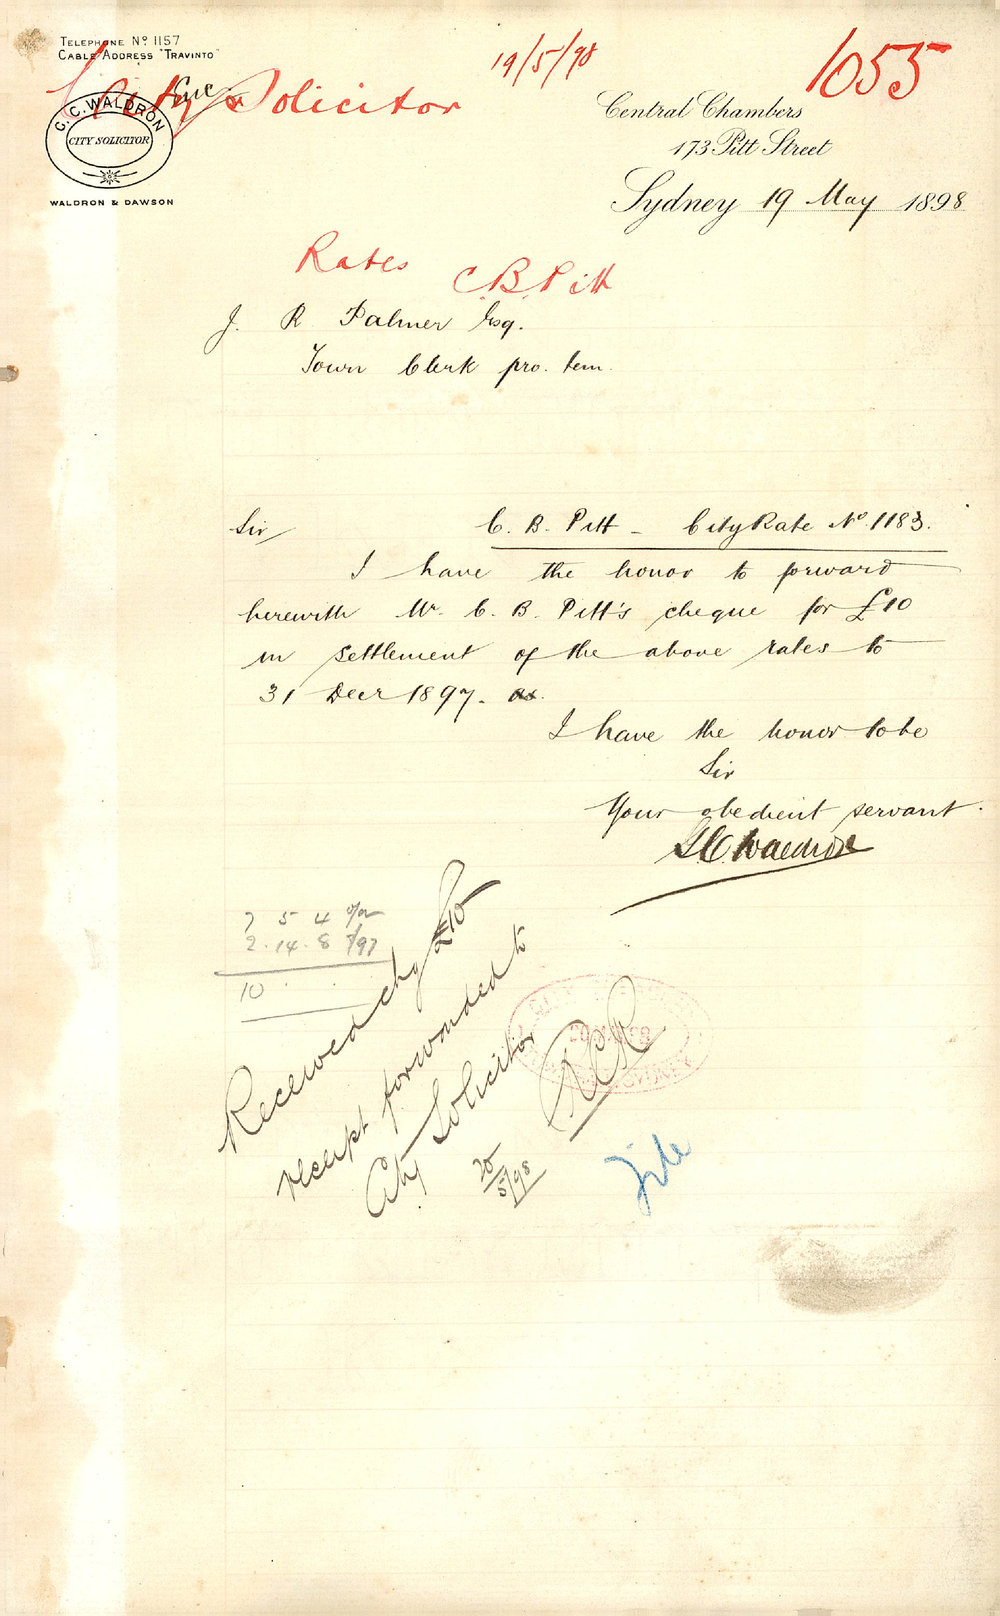 TELEPHONE Nº 1157
CABLE ADDRESS "TRAVINTO"
19/5/98
1055
City Solicitor
Enc
C. C. WALDRON
CITY SOLICITOR
WALDRON & DAWSON
Central Chambers
173 Pitt Street
Sydney 19 May 1898
Rates C.B. Pitt
J. R Palmer Esq.
Town Clerk pro. tem.
Sir
C. B. Pitt - City Rate Nº 1183.
I have the honor to forward
herewith Mr. C. B. Pitt's cheque for £10
in settlement of the above rates to
31 Decr 1897.
I have the honor to be
Sir
Your obedient servant.
Waldron
7 5 4
2.14.8 /97
10
Received chq £10
receipt forwarded to
City Solicitor
20/5/98
File